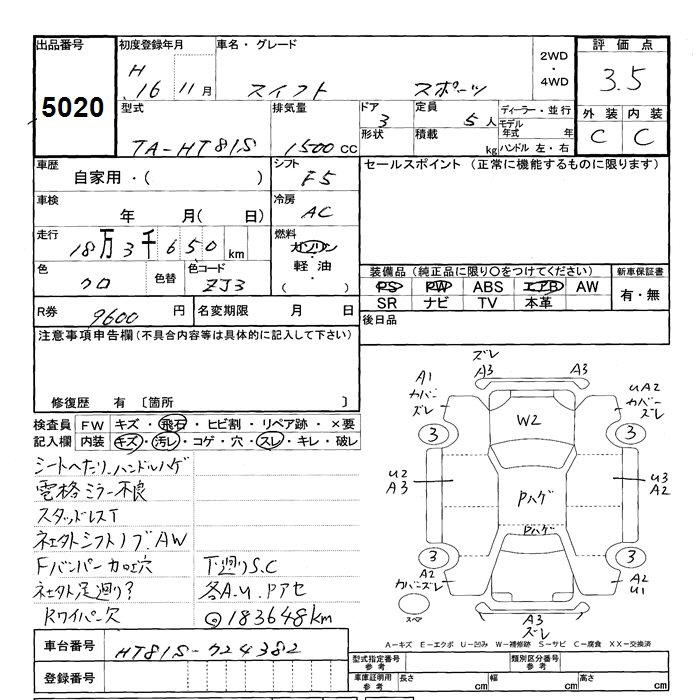 出品番号 初度登録年月 車名・グレード 2WD・4WD 評価点
5020 H 16 11月 スイフト スポーツ 3.5
型式 排気量 ドア 定員 ディーラー・並行 外装 内装
TA-HT81S 1500CC 3 5人 モデル年式 年 C C
形状 積載 kg ハンドル 左・右
車歴 シフト セールスポイント (正常に機能するものに限ります)
自家用・( ) F5
車検 冷房
年 月( 日) AC
走行 燃料
18万3千650km ガソリン・軽油・( )
色 色替 色コード 装備品 (純正品に限り○をつけてください) 新車保証書
クロ ZJ3 PS PW ABS エアB AW 有・無
SR ナビ TV 本革
R券 9600円 名変期限 月 日 後日品
注意事項申告欄(不具合内容等は具体的に記入して下さい)
修復歴 有 〔箇所 〕
検査員 FW キズ・飛石・ヒビ割・リペア跡・×要
記入欄 内装 キズ・汚レ・コゲ・穴・スレ・キレ・破レ
シートヘたり、ハンドルハゲ
電格ミラー不良
スタッドレスT
ネエタトシフトノブ.AW
Fバンパーカロエ穴 下廻りS.C
ネエタト足廻り? 各A.U.Pアセ
Rワイパー欠 @183648km
車台番号 HT81S-724382
登録番号
ズレ
A3 A3
A1 カバーズレ
UA2 カバーズレ
W2
3 3
U2 A3
U3 A2
Pハゲ
Pハゲ
3 3
A2 カバーズレ
A2 U1
スペア
A3
ズレ
A-キズ E-エクボ U-凹み W-補修跡 S-サビ C-腐食 XX-交換済
型式指定番号 参考 類別区分番号 参考
車庫証明用 参考 長さ cm 幅 cm 高さ cm